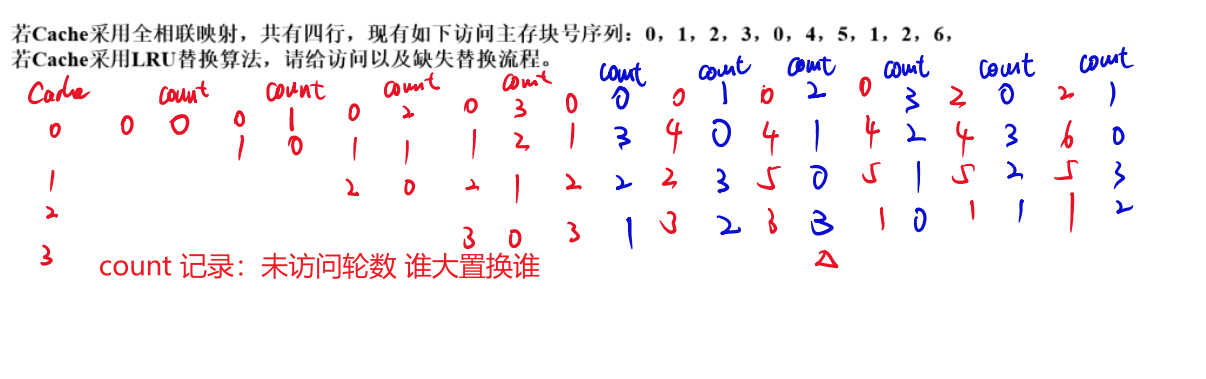 若Cache采用全相联映射，共有四行，现有如下访问主存块号序列：0，1，2，3，0，4，5，1，2，6，
若Cache采用LRU替换算法，请给访问以及缺失替换流程。
Cache count count count count count count count count count count
0 0 0 0 1 0 2 0 3 0 0 0 1 0 2 0 3 2 0 2 1
1 0 1 1 1 2 1 3 4 0 4 1 4 2 4 3 6 0
1 2 0 2 1 2 2 2 3 5 0 5 1 5 2 5 3
2 3 0 3 1 3 2 3 3 1 0 1 1 1 2
3 count 记录：未访问轮数 谁大置换谁 △